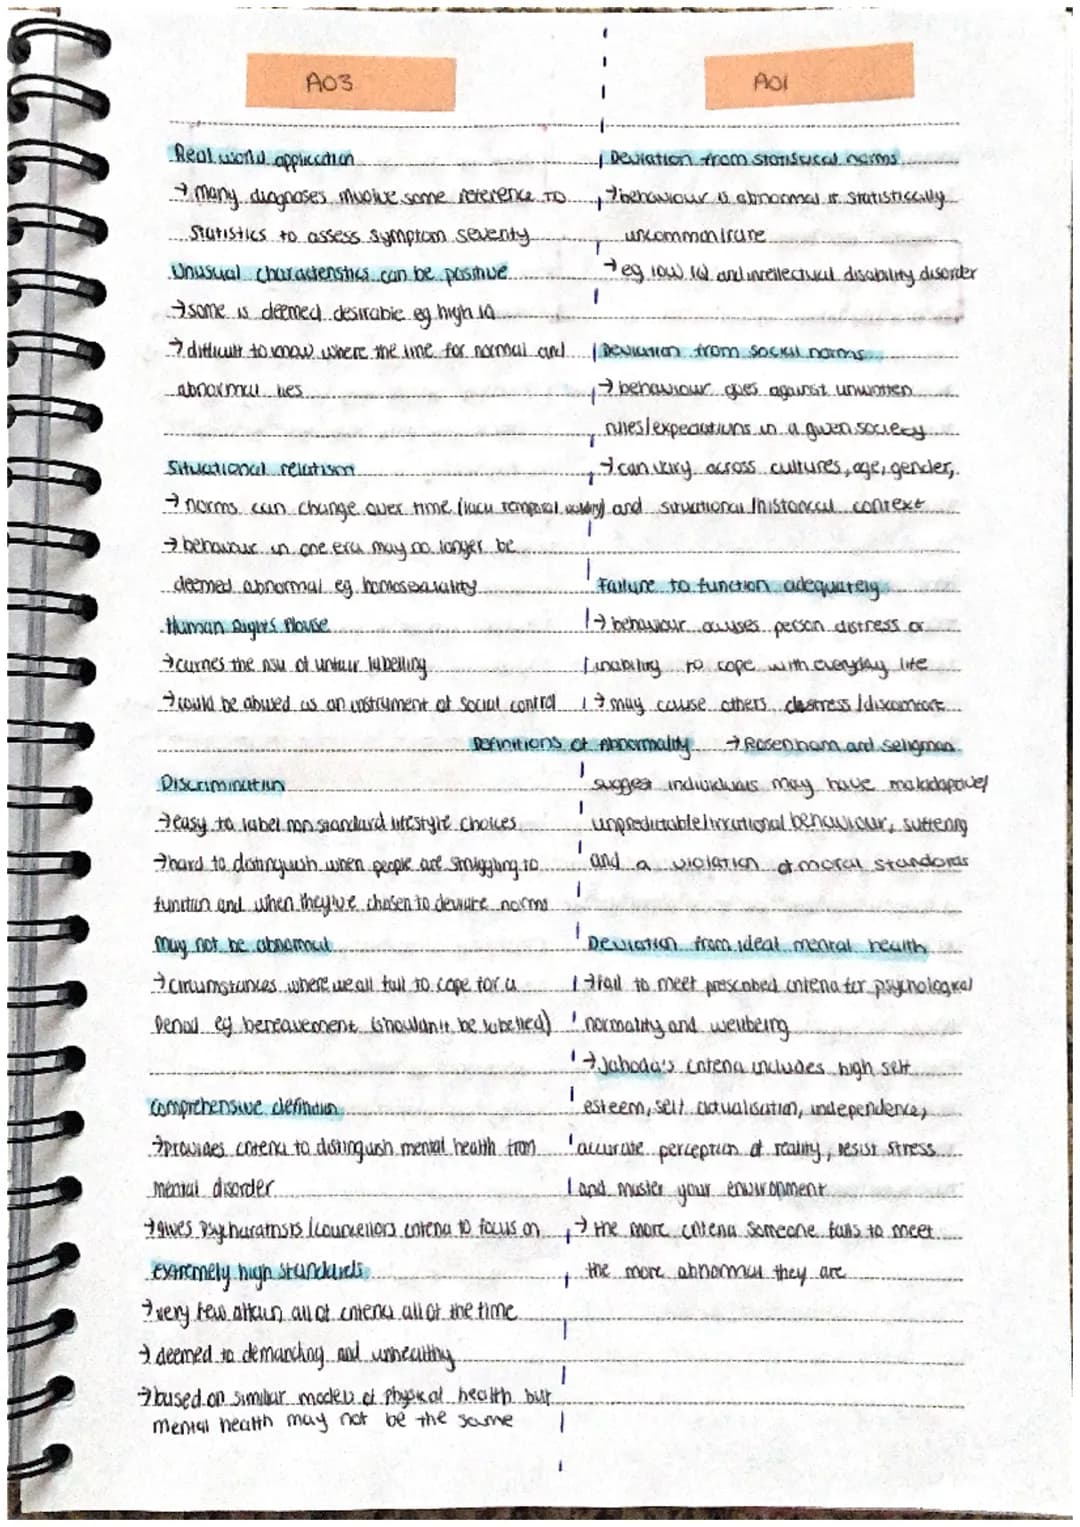 AO3
Real world application
→ many diagnoses involve some reference to
statistics to assess symptom severity
Unusual characteristics can be positive
→ some is deemed desirable eg high IQ
→ difficult to know where the line for normal and
abnormal lies
Situational relatism
→ norms can change over time (lack temporal validity)
→ behaviour in one era may no longer be
deemed abnormal eg homosexuality
Human Rights Abuse
→ carries the risk of unfair labelling
→ could be abused as an instrument of social control
Definitions of Abnormality
Discrimination
→ easy to label non standard lifestyle choices
→ hard to distinguish when people are struggling to
function and when they've chosen to deviate norms
May not be abnormal
→ circumstances where we all fail to cope for a
period eg bereavement (shouldn't be labelled)
Comprehensive definition
→ provides criteria to distinguish mental health from
mental disorder
→ gives / councellors criteria to focus on
Extremely high standards
→ very few attain all of criteria all of the time
→ deemed to demanding and unhealthy
→ based on similar models of physical health but
mental health may not be the same
AO1
Deviation from statistical norms
→ behaviour is abnormal if statistically
uncommon/rare
→ eg low IQ and intellectual disability disorder
Deviation from social norms
→ behaviour goes against unwritten
rules/expectations in a given society
→ can vary across cultures, age, gender,
and situational/historical context
Failure to function adequately
→ behaviour causes person distress or
inability to cope with everyday life
→ may cause others distress/discomfort
→ Rosenham and Seligman
suggest individuals may have maladaptive/
unpredictable/irrational behaviour, suffering
and a violation of moral standards
Deviation from ideal mental health
→ fail to meet prescribed criteria for psychological
normality and wellbeing
→ Jahoda's criteria includes high self
esteem, self actualisation, independence,
accurate perception of reality, resist stress
and master your environment
→ the more criteria someone fails to meet
the more abnormal they are